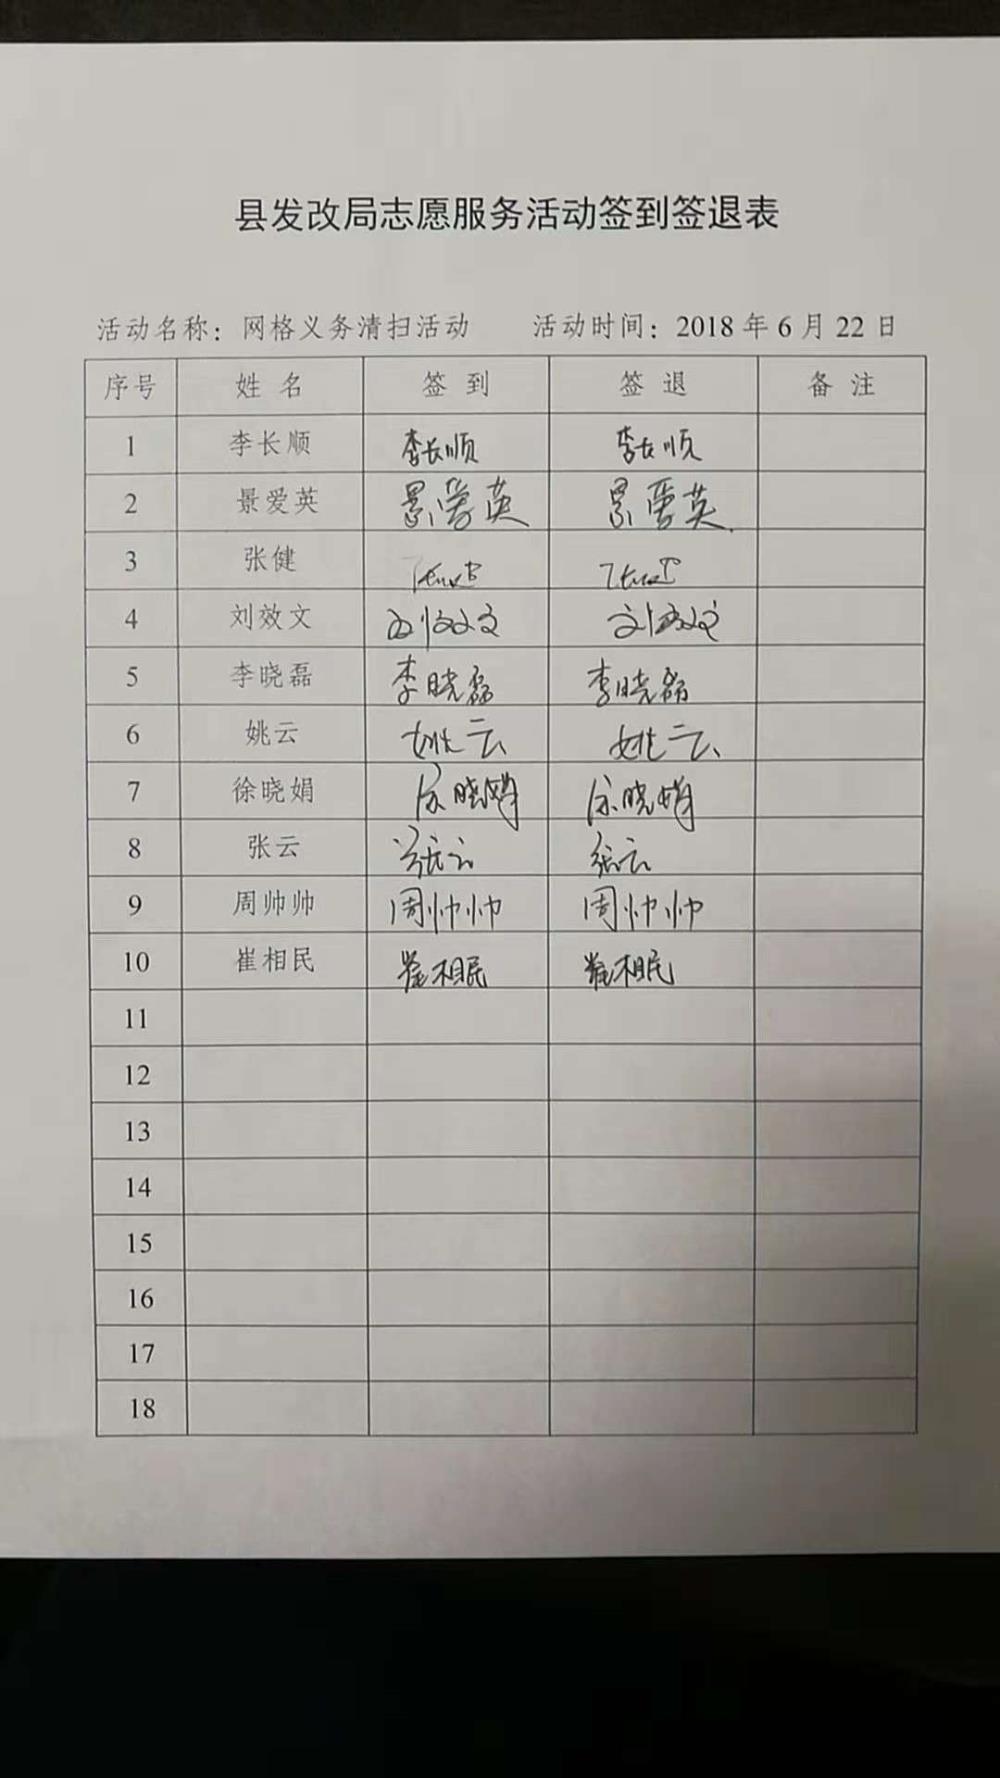 县发改局志愿服务活动签到签退表
活动名称：网格义务清扫活动 活动时间：2018 年 6 月 22 日
序号 姓 名 签 到 签 退 备 注
1 李长顺 李长顺 李长顺
2 景爱英 景爱英 景爱英
3 张健
4 刘效文 刘效文 刘效文
5 李晓磊 李晓磊 李晓磊
6 姚云 姚云 姚云
7 徐晓娟 徐晓娟 徐晓娟
8 张云 张云 张云
9 周帅帅 周帅帅 周帅帅
10 崔相民 崔相民 崔相民
11
12
13
14
15
16
17
18